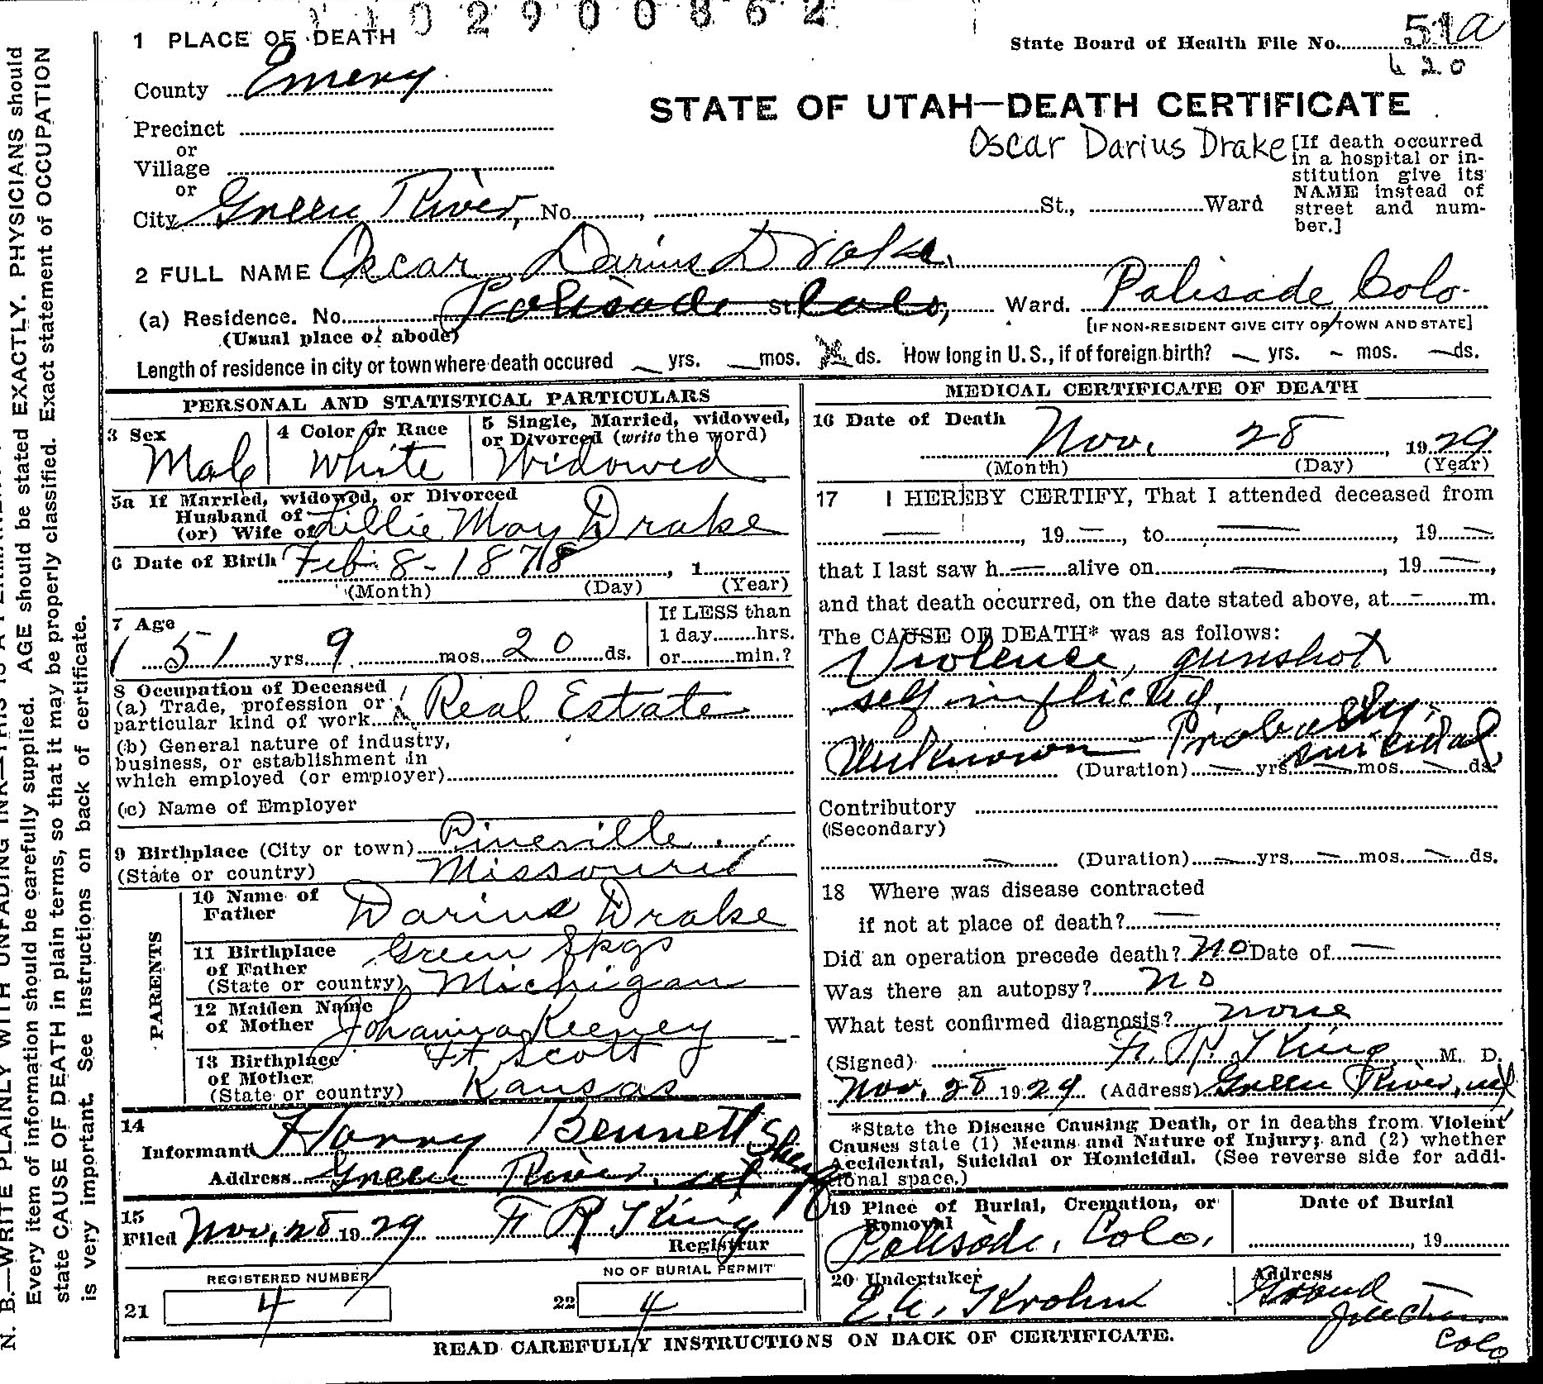 1102900862
1 PLACE OF DEATH
State Board of Health File No. 51a
620
County Emery
STATE OF UTAH—DEATH CERTIFICATE
Precinct
or
Village
or
City Green River, No. , St., Ward
Oscar Darius Drake
[If death occurred
in a hospital or in-
stitution give its
NAME instead of
street and num-
ber.]
2 FULL NAME Oscar Darius Drake.
(a) Residence. No. Palisade St. Colo, Ward. Palisade Colo.
(Usual place of abode)
[IF NON-RESIDENT GIVE CITY OR TOWN AND STATE]
Length of residence in city or town where death occured — yrs. — mos. ds. How long in U. S., if of foreign birth? — yrs. - mos. — ds.
PERSONAL AND STATISTICAL PARTICULARS
3 Sex
Male
4 Color or Race
White
5 Single, Married, widowed,
or Divorced (write the word)
Widowed
5a If Married, widowed, or Divorced
Husband of
(or) Wife of Lillie May Drake
6 Date of Birth Feb. 8 - 1878, 1
(Month) (Day) (Year)
7 Age
51 yrs. 9 mos. 20 ds.
If LESS than
1 day hrs.
or min.?
8 Occupation of Deceased
(a) Trade, profession or
particular kind of work Real Estate
(b) General nature of industry,
business, or establishment in
which employed (or employer)
(c) Name of Employer
9 Birthplace (City or town) Pineville
(State or country) Missouri
PARENTS
10 Name of
Father Darius Drake
11 Birthplace
of Father Green Spgs
(State or country) Michigan
12 Maiden Name
of Mother Johanna Keeney
13 Birthplace
of Mother Ft. Scott
(State or country) Kansas
14
Informant Harry Bennett Sheriff
Address Green River, ut
15
Filed Nov, 28 1929 F. R. King
Registrar
REGISTERED NUMBER
21 4
NO OF BURIAL PERMIT
22 4
MEDICAL CERTIFICATE OF DEATH
16 Date of Death
Nov. 28, 1929
(Month) (Day) (Year)
17 I HEREBY CERTIFY, That I attended deceased from
—, 19 —, to —, 19 —
that I last saw h — alive on —, 19 —,
and that death occurred, on the date stated above, at - m.
The CAUSE OF DEATH* was as follows:
Violence, gunshot
self inflicted,
Unknown - Probably suicidal,
(Duration) — yrs. — mos. — ds.
Contributory
(Secondary)
— (Duration) — yrs. — mos. — ds.
18 Where was disease contracted
if not at place of death? —
Did an operation precede death? no Date of —
Was there an autopsy? no
What test confirmed diagnosis? none
(Signed) F. R. King M. D.
Nov, 28 1929 (Address) Green River, ut
*State the Disease Causing Death, or in deaths from Violent
Causes state (1) Means and Nature of Injury; and (2) whether
Accidental, Suicidal or Homicidal. (See reverse side for addi-
tional space.)
19 Place of Burial, Cremation, or
Removal
Palisade, Colo.
Date of Burial
, 19
20 Undertaker
E. C. Krohn
Address
Grand
Junction
Colo
READ CAREFULLY INSTRUCTIONS ON BACK OF CERTIFICATE.
N. B.—WRITE PLAINLY WITH UNFADING INK—THIS IS A PERMANENT
Every item of information should be carefully supplied. AGE should be stated EXACTLY. PHYSICIANS should
state CAUSE OF DEATH in plain terms, so that it may be properly classified. Exact statement of OCCUPATION
is very important. See instructions on back of certificate.